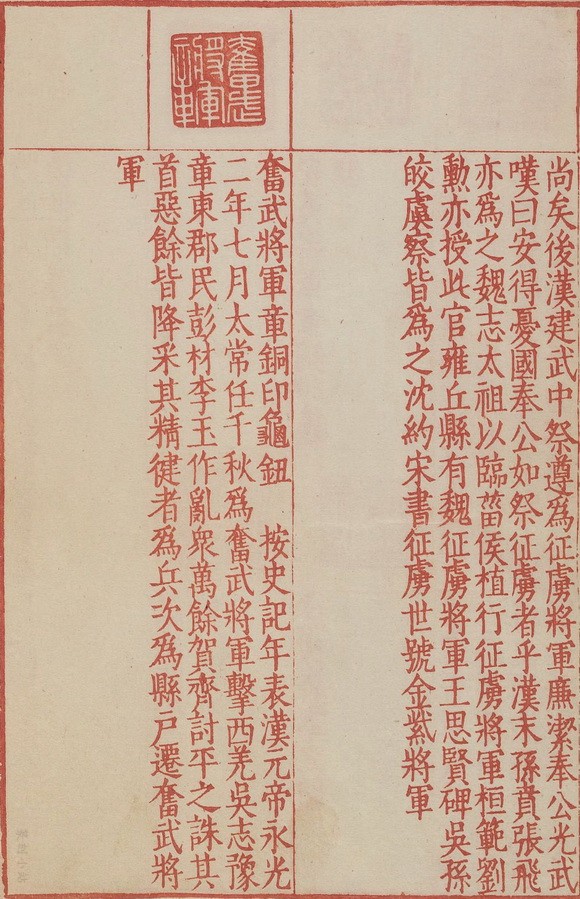 尚矣後漢建武中祭遵爲征虜將軍廉潔奉公光武
嘆曰安得憂國奉公如祭征虜者乎漢末孫賁張飛
亦爲之魏志太祖以臨菑侯植行征虜將軍桓範劉
勳亦授此官雍丘縣有魏征虜將軍王思賢碑吳孫
皎虞察皆爲之沈約宋書征虜世號金紫將軍
奮武將軍章
奮武將軍章銅印龜鈕　按史記年表漢元帝永光
二年七月太常任千秋爲奮武將軍擊西羌吳志豫
章東郡民彭材李玉作亂衆萬餘賀齊討平之誅其
首惡餘皆降采其精健者爲兵次爲縣戸遷奮武將
軍